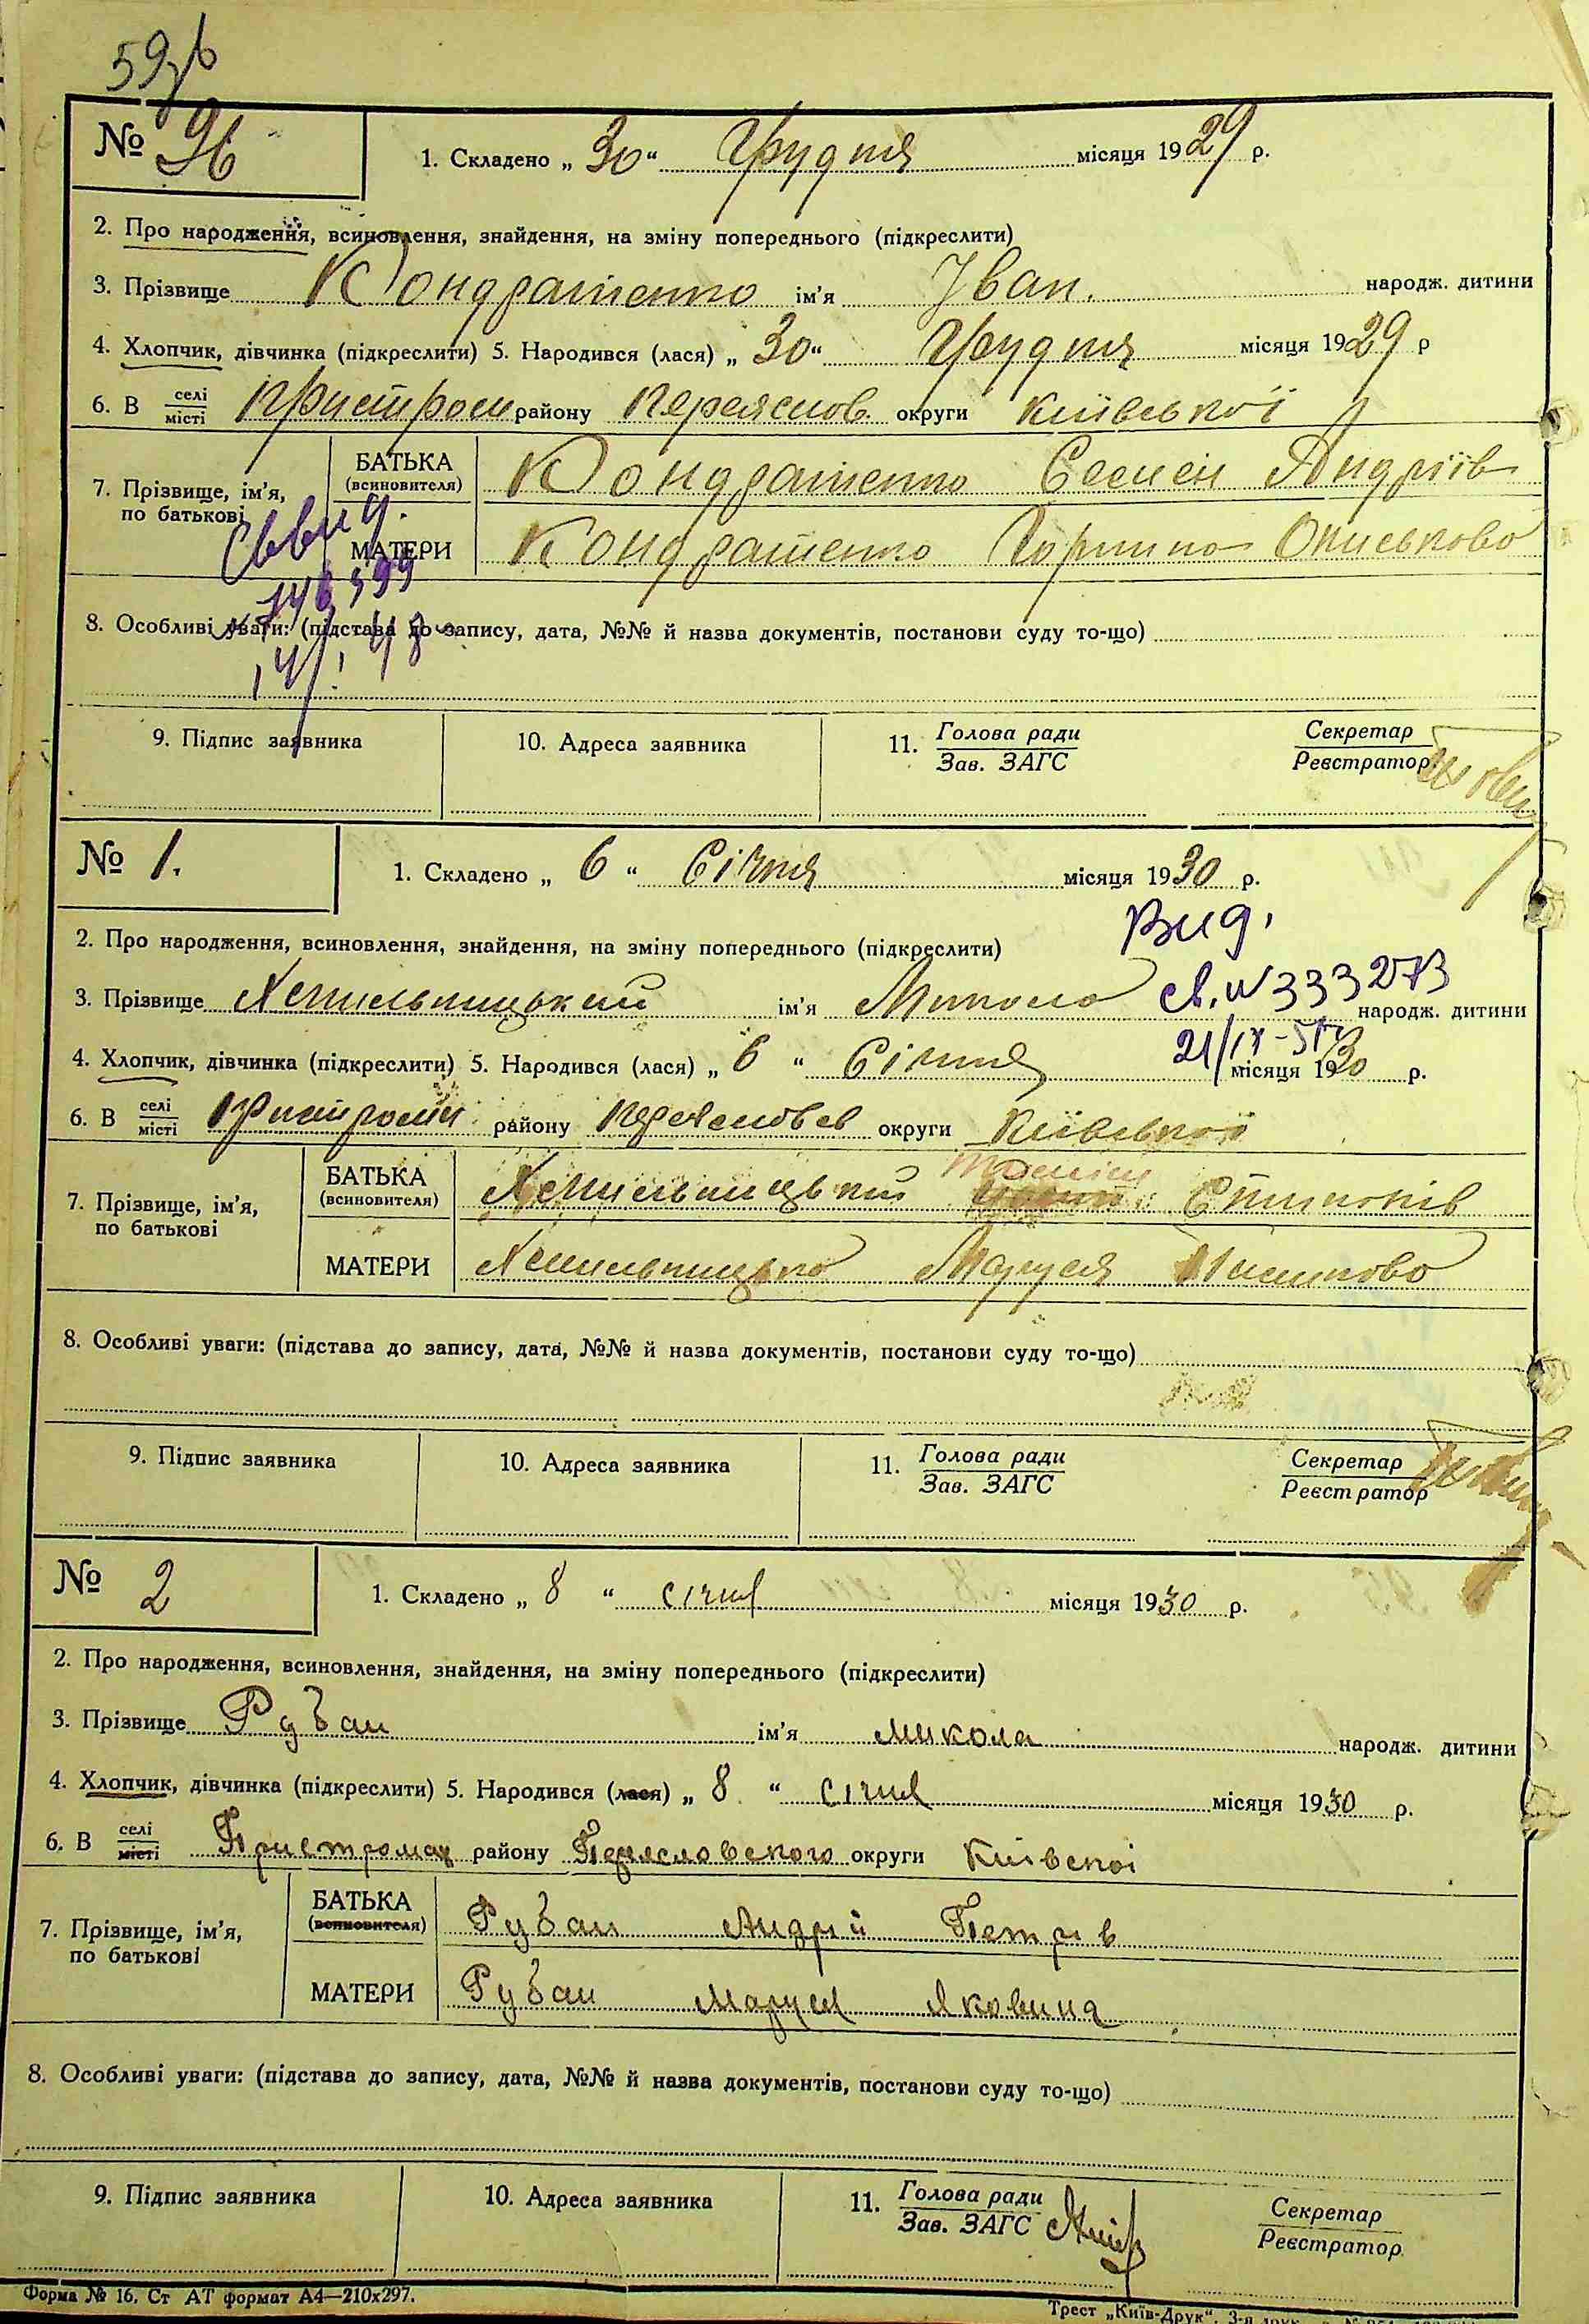 59зв
№ 96
1. Складено „ 30 “ Грудня місяця 1929 р.
2. Про народження, всиновлення, знайдення, на зміну попереднього (підкреслити)
3. Прізвище Кондратенко ім'я Іван. народж. дитини
4. Хлопчик, дівчинка (підкреслити) 5. Народився (лася) „ 30 “ Грудня місяця 1929 р
6. В селі/місті Пристром району Переяслов. округи Київської
7. Прізвище, ім'я, по батькові
БАТЬКА (всиновителя) Кондратенко Семен Андріїв
МАТЕРИ Кондратенко Горпина
8. Особливі уваги: (підстава до запису, дата, №№ й назва документів, постанови суду то-що)
9. Підпис заявника 10. Адреса заявника 11. Голова ради/Зав. ЗАГС Секретар/Реєстратор
№ 1.
1. Складено „ 6 “ Січня місяця 1930 р.
Вид.
2. Про народження, всиновлення, знайдення, на зміну попереднього (підкреслити)
св. № 333273
3. Прізвище Хмильницький ім'я Микола народж. дитини
4. Хлопчик, дівчинка (підкреслити) 5. Народився (лася) „ 6 “ Січня місяця 1930 р.
6. В селі/місті Пристроми району округи Київської
7. Прізвище, ім'я, по батькові
БАТЬКА (всиновителя) Хмильницький
МАТЕРИ Хмильницька Маруся
8. Особливі уваги: (підстава до запису, дата, №№ й назва документів, постанови суду то-що)
9. Підпис заявника 10. Адреса заявника 11. Голова ради/Зав. ЗАГС Секретар/Реєстратор
№ 2
1. Складено „ 8 “ січня місяця 1930 р.
2. Про народження, всиновлення, знайдення, на зміну попереднього (підкреслити)
3. Прізвище Рубан ім'я Микола народж. дитини
4. Хлопчик, дівчинка (підкреслити) 5. Народився (лася) „ 8 “ січня місяця 1930 р.
6. В селі/місті Пристромах району Переясловского округи Київскої
7. Прізвище, ім'я, по батькові
БАТЬКА (всиновителя) Рубан Андрій Петрів
МАТЕРИ Рубан Маруся Яковина
8. Особливі уваги: (підстава до запису, дата, №№ й назва документів, постанови суду то-що)
9. Підпис заявника 10. Адреса заявника 11. Голова ради/Зав. ЗАГС Секретар/Реєстратор
Форма № 16. Ст АТ формат А4—210х297.
Трест „Київ-Друк“, 3-я